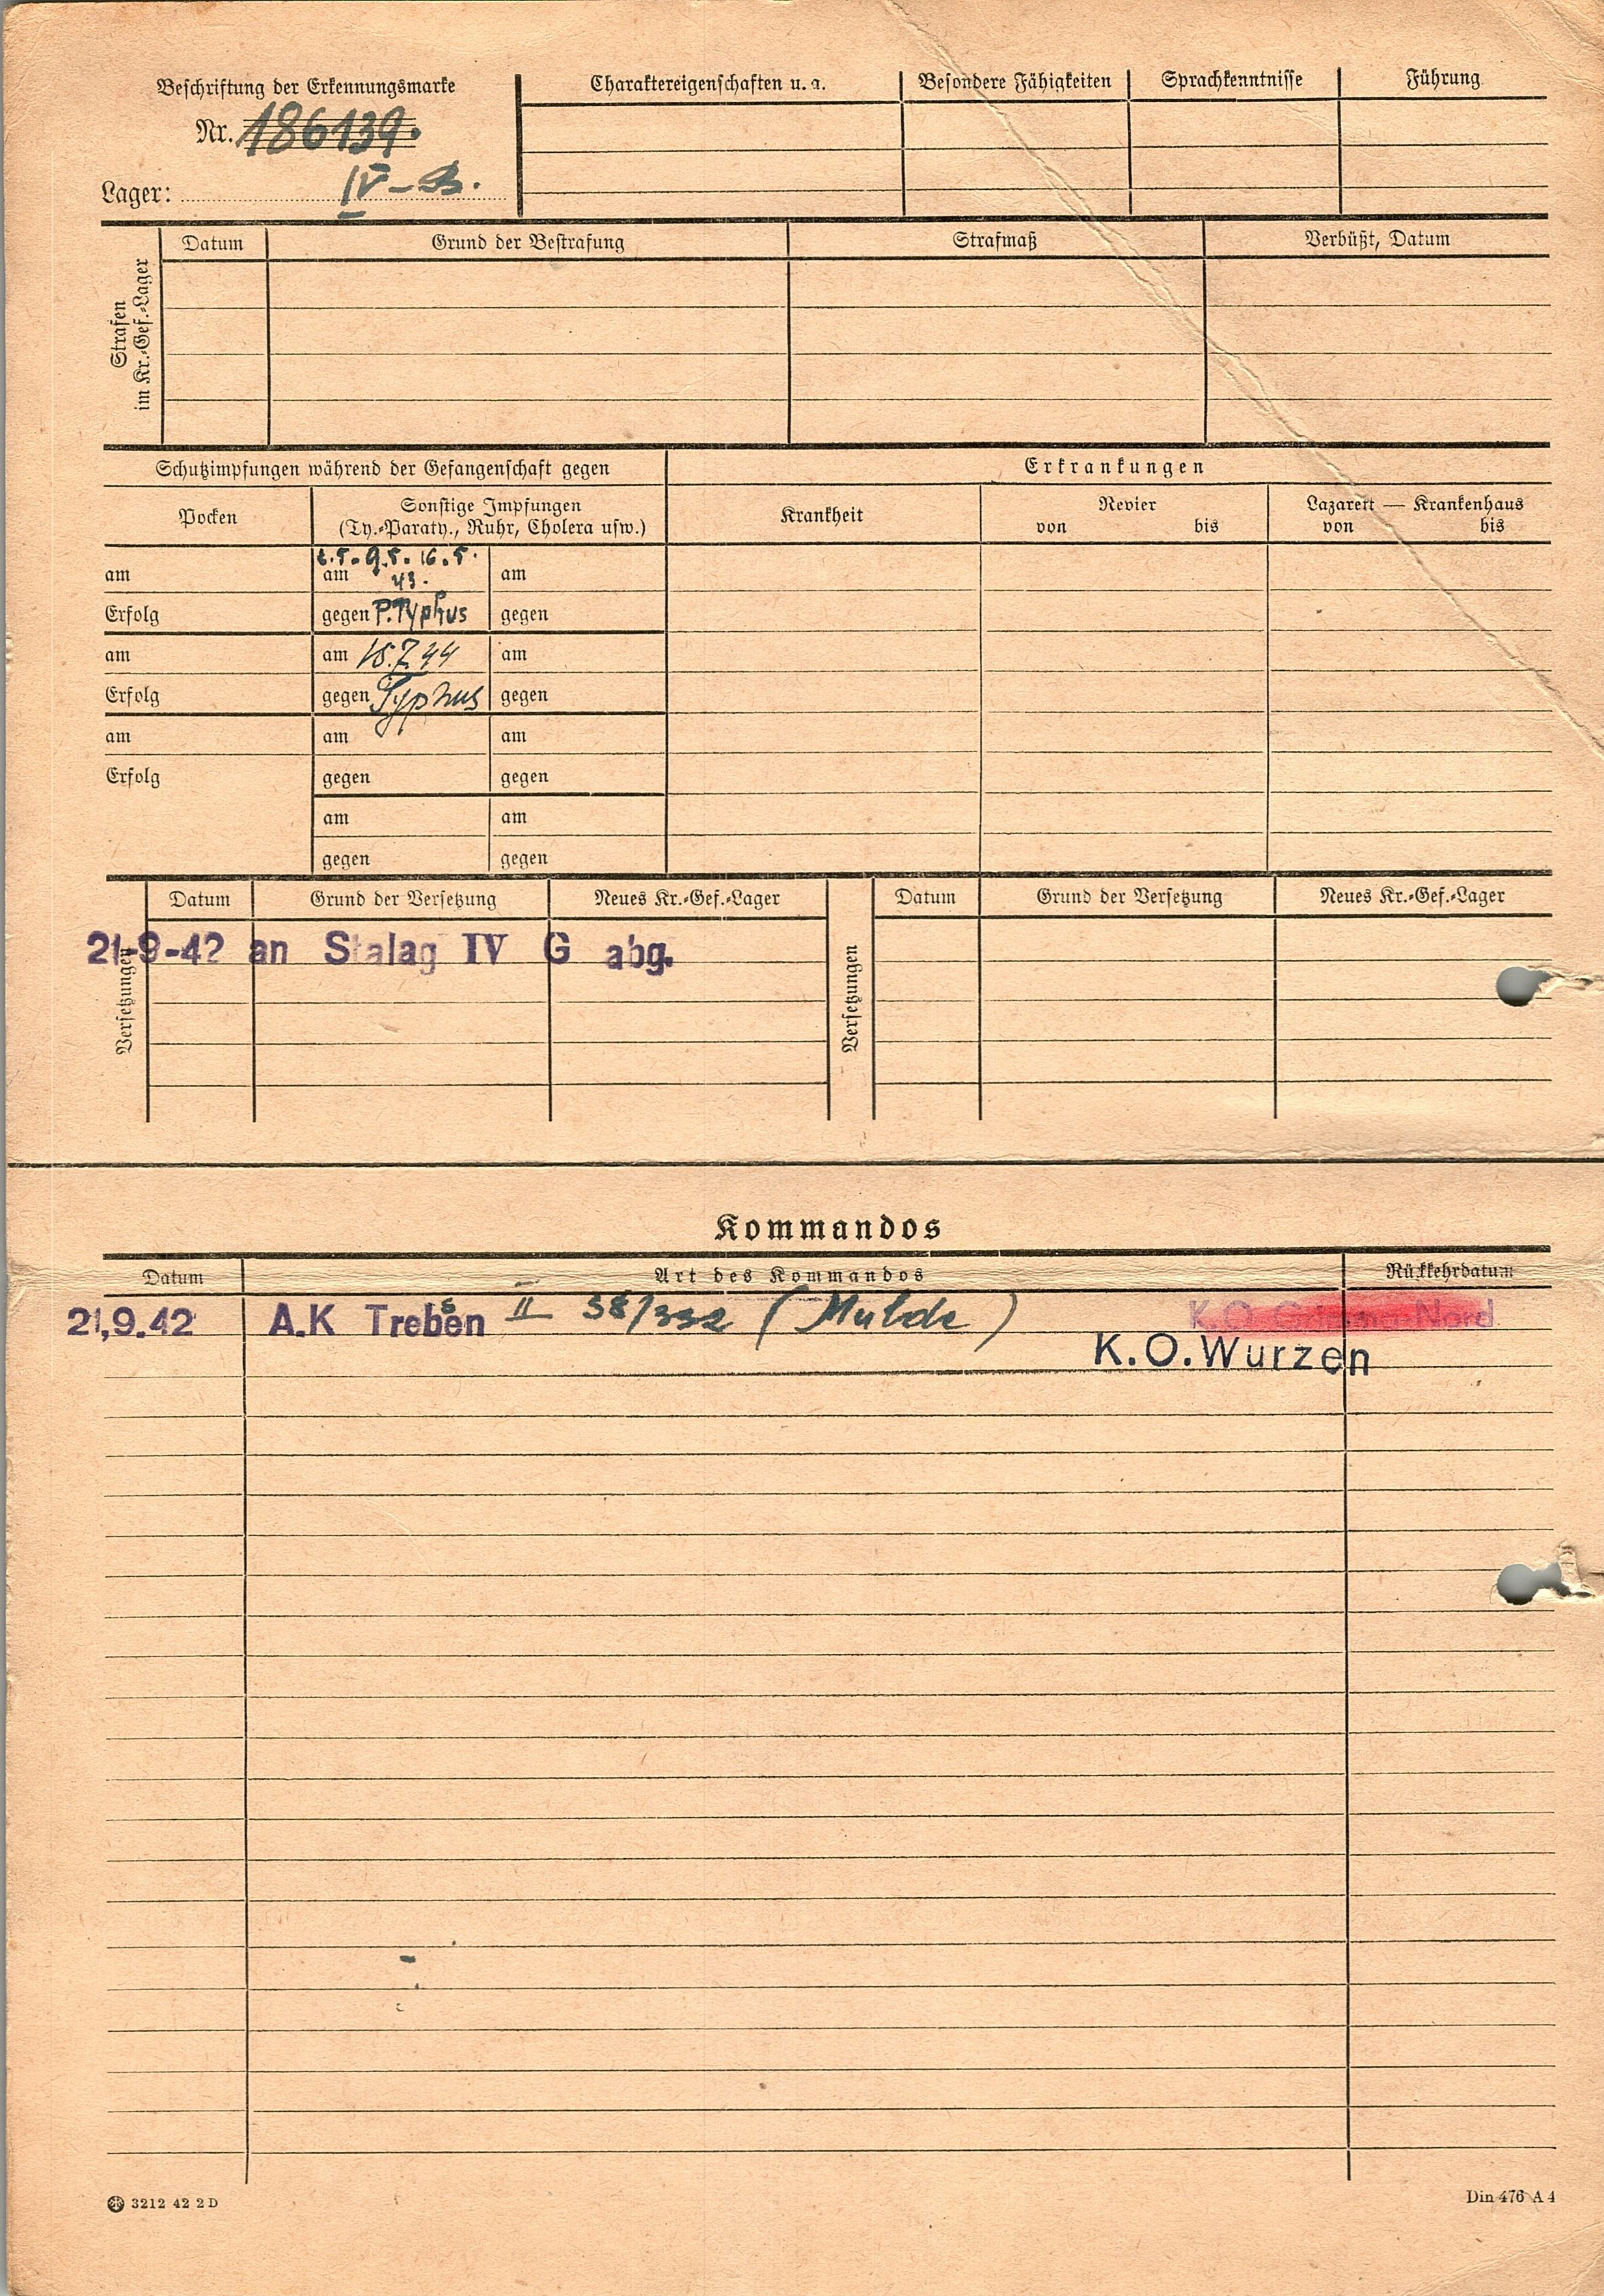 Beschriftung der Erkennungsmarke
Nr. 186139.
Lager: IV-B.
Charaktereigenschaften u. a.
Besondere Fähigkeiten
Sprachkenntnisse
Führung
Strafen
im Kr.-Gef.-Lager
Datum
Grund der Bestrafung
Strafmaß
Verbüßt, Datum
Schutzimpfungen während der Gefangenschaft gegen
Erkrankungen
Pocken
Sonstige Impfungen
(Ty.-Paraty., Ruhr, Cholera usw.)
Krankheit
Revier
von bis
Lazarett — Krankenhaus
von bis
9.5. 16.5.
am am 43. am
Erfolg gegen P.Typhus gegen
am am 15.7.44 am
Erfolg gegen Typhus gegen
am am am
Erfolg gegen gegen
am am
gegen gegen
Versetzungen
Datum Grund der Versetzung Neues Kr.-Gef.-Lager
21-9-42 an Stalag IV G abg.
Versetzungen
Datum Grund der Versetzung Neues Kr.-Gef.-Lager
Kommandos
Datum Art des Kommandos Rückkehrdatum
21,9.42 A.K Trebsen II 58/332 (Mulde) K.O Grimma-Nord
K.O.Wurzen
3212 42 2 D
Din 476 A 4